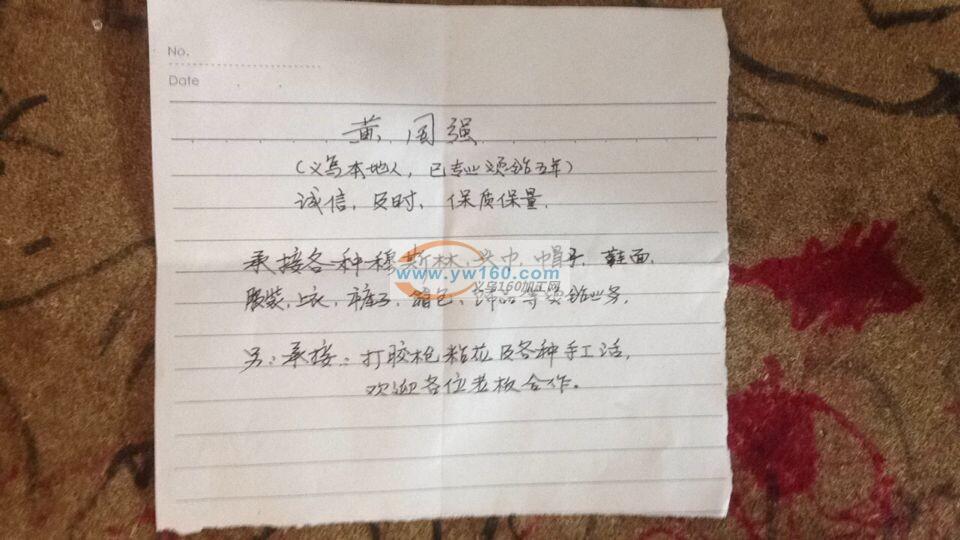 No.
Date
黄国强
(义乌本地人，已专业烫钻五年)
诚信，及时，保质保量，
承接各种穆斯林，头巾，帽子，鞋面，
www.yw160.com
义乌160加工网
服装，上衣，裤子，箱包，饰品等烫钻业务，
另：承接：打胶枪粘花及各种手工活，
欢迎各位老板合作。